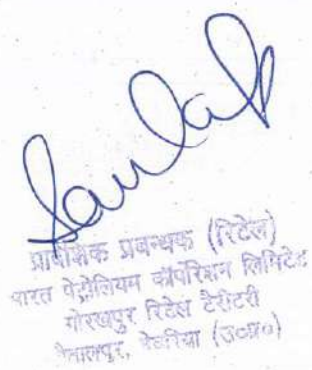 प्रादेशिक प्रबन्धक (रिटेल)
भारत पेट्रोलियम कॉर्पोरेशन लिमिटेड
गोरखपुर रिटेल टेरीटरी
बैतालपुर, देवरिया (उ०प्र०)